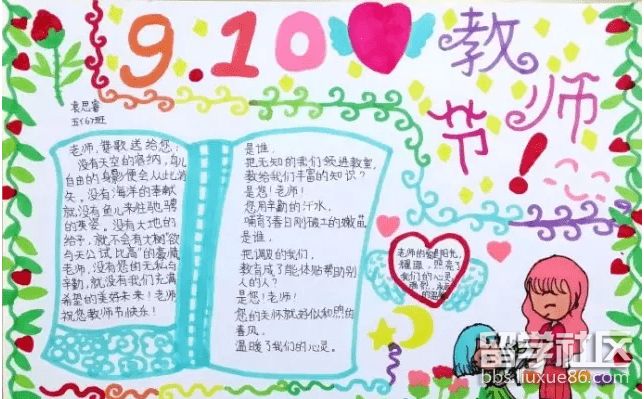 9.10
教师节!
袁思睿
五(6)班
老师,赞歌送给您:
没有天空的容纳,鸟儿
自由的身影便会从此消
失。没有海洋的奉献
就没有鱼儿来驰骋
的英姿。没有大地的
给予,就不会有大树"欲
与天公试比高"的豪情
老师,没有您的无私与
辛勤,就没有我们充满
希望的美好未来!老师
祝您教师节快乐!
是谁,
把无知的我们领进教室,
教给我们丰富的知识?
是您!老师!
您用辛勤的汗水,
哺育了春日刚破土的嫩苗
是谁,
把调皮的我们,
教育成了能体贴帮助别
人的人?
是您!老师!
您的关怀就好似和煦的
春风,
温暖了我们的心灵。
老师的爱是阳光,
照亮了
我们的心灵
留学社区
bbs.liuxue86.com